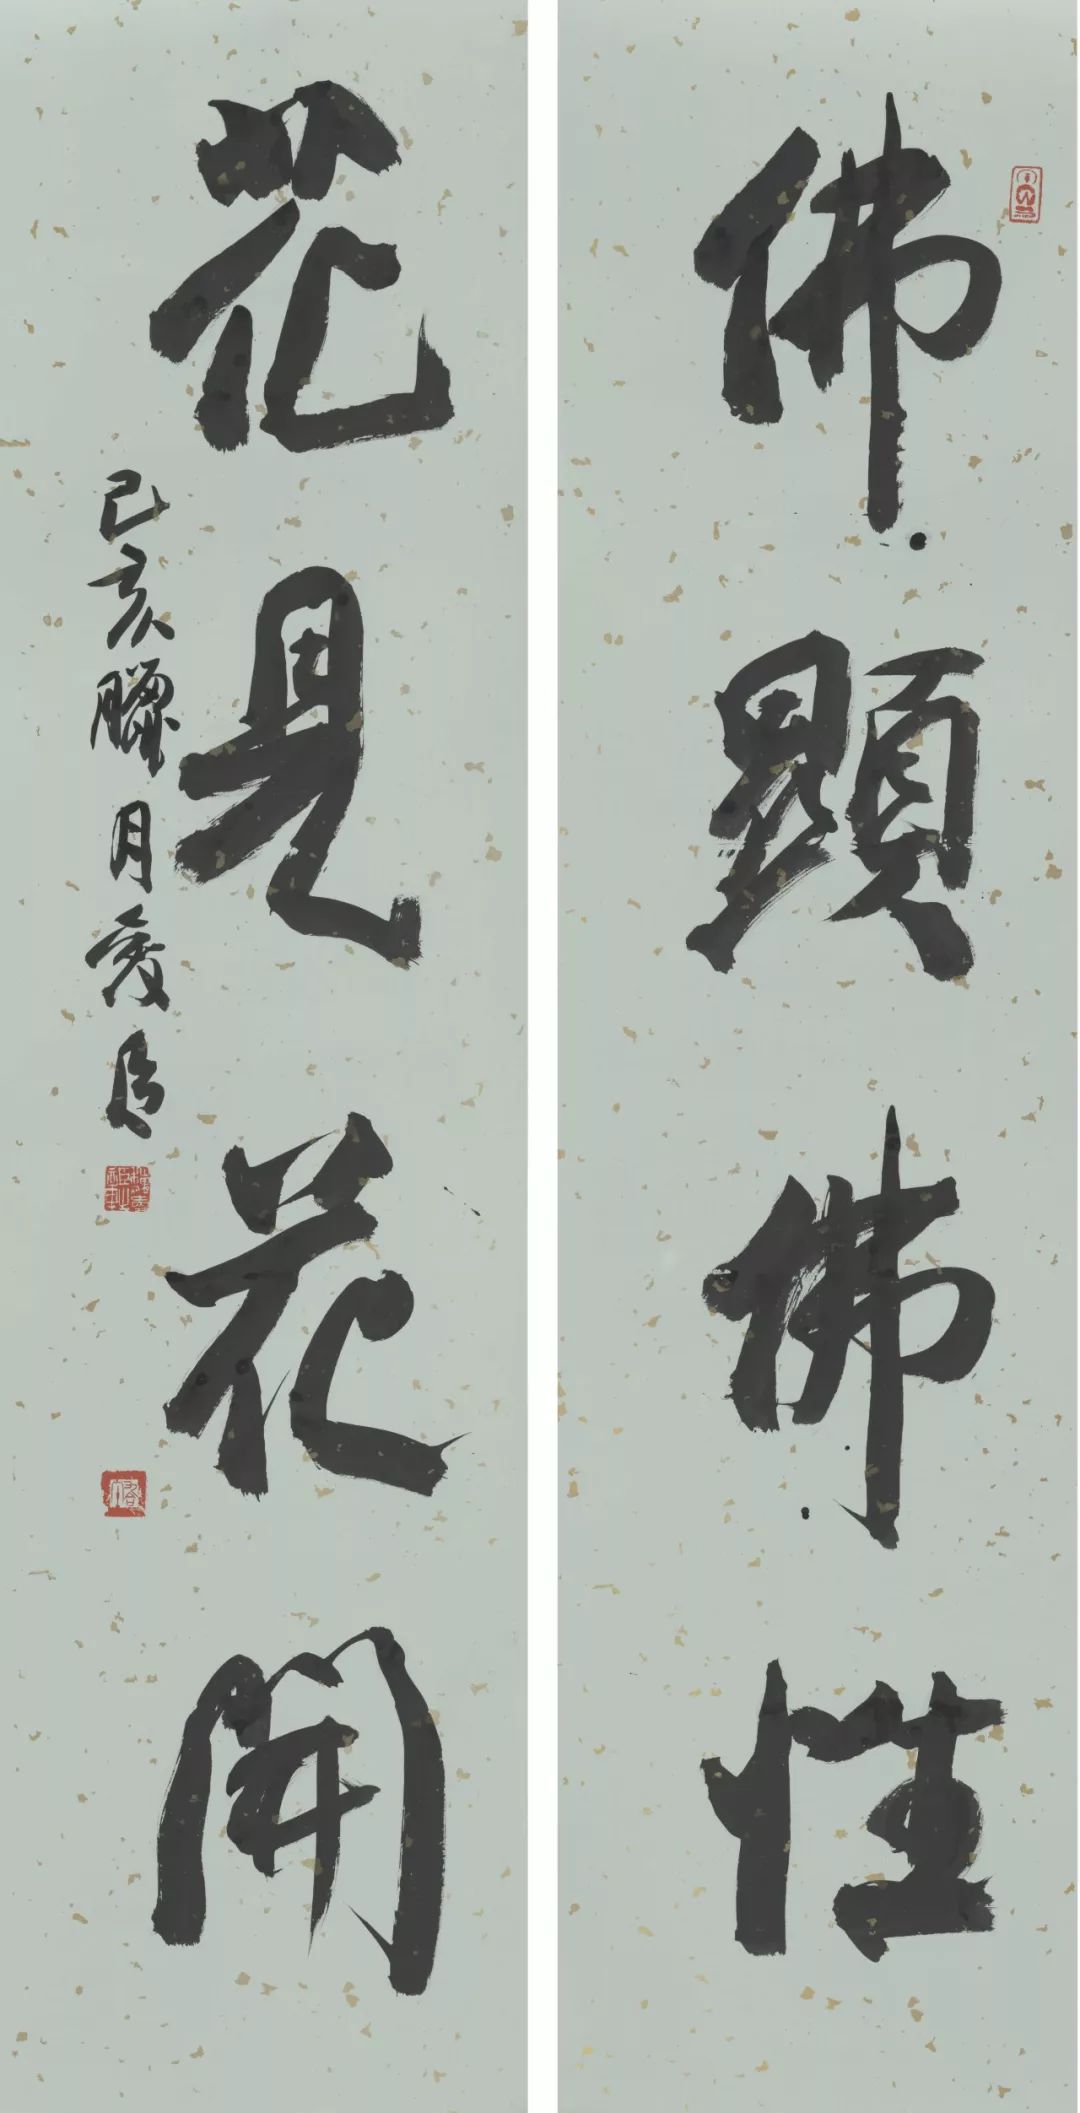 佛顯佛性
花見花開
己亥臘月